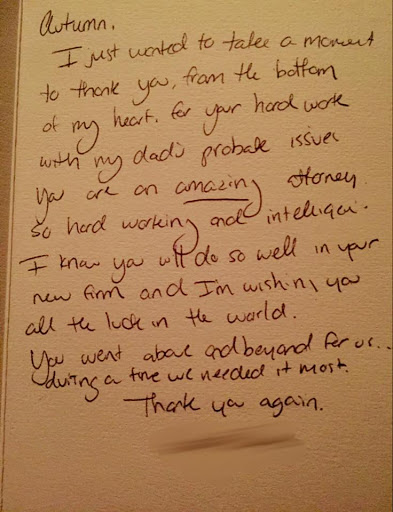 Autumn,
I just wanted to take a moment
to thank you, from the bottom
of my heart. for your hard work
with my dad's probate issues
You are an amazing attorney.
so hard working and intelligen.
I know you will do so well in your
new firm and I'm wishing you
all the luck in the world.
You went above and beyond for us..
during a time we needed it most.
Thank you again.